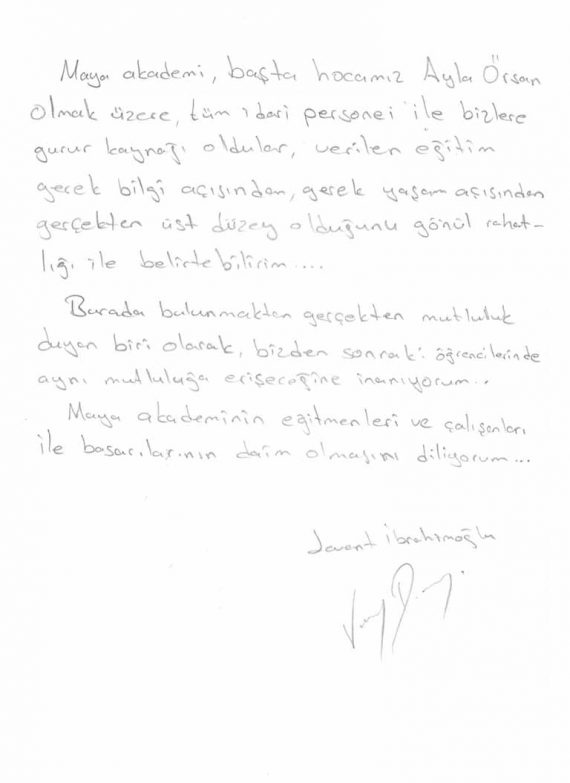 Maya akademi, başta hocamız Ayla Örsan
olmak üzere, tüm idari personei ile bizlere
gurur kaynağı oldular, verilen eğitim
gerek bilgi açısından, gerek yaşam açısından
gerçekten üst düzey olduğunu gönül rahat-
lığı ile belirtebilirim....
Burada bulunmaktan gerçekten mutluluk
duyan biri olarak, bizden sonraki öğrencilerinde
aynı mutluluğa erişeceğine inanıyorum...
Maya akademinin eğitmenleri ve çalışanları
ile basarılarının daim olmasını diliyorum...
İbrahimoğlu